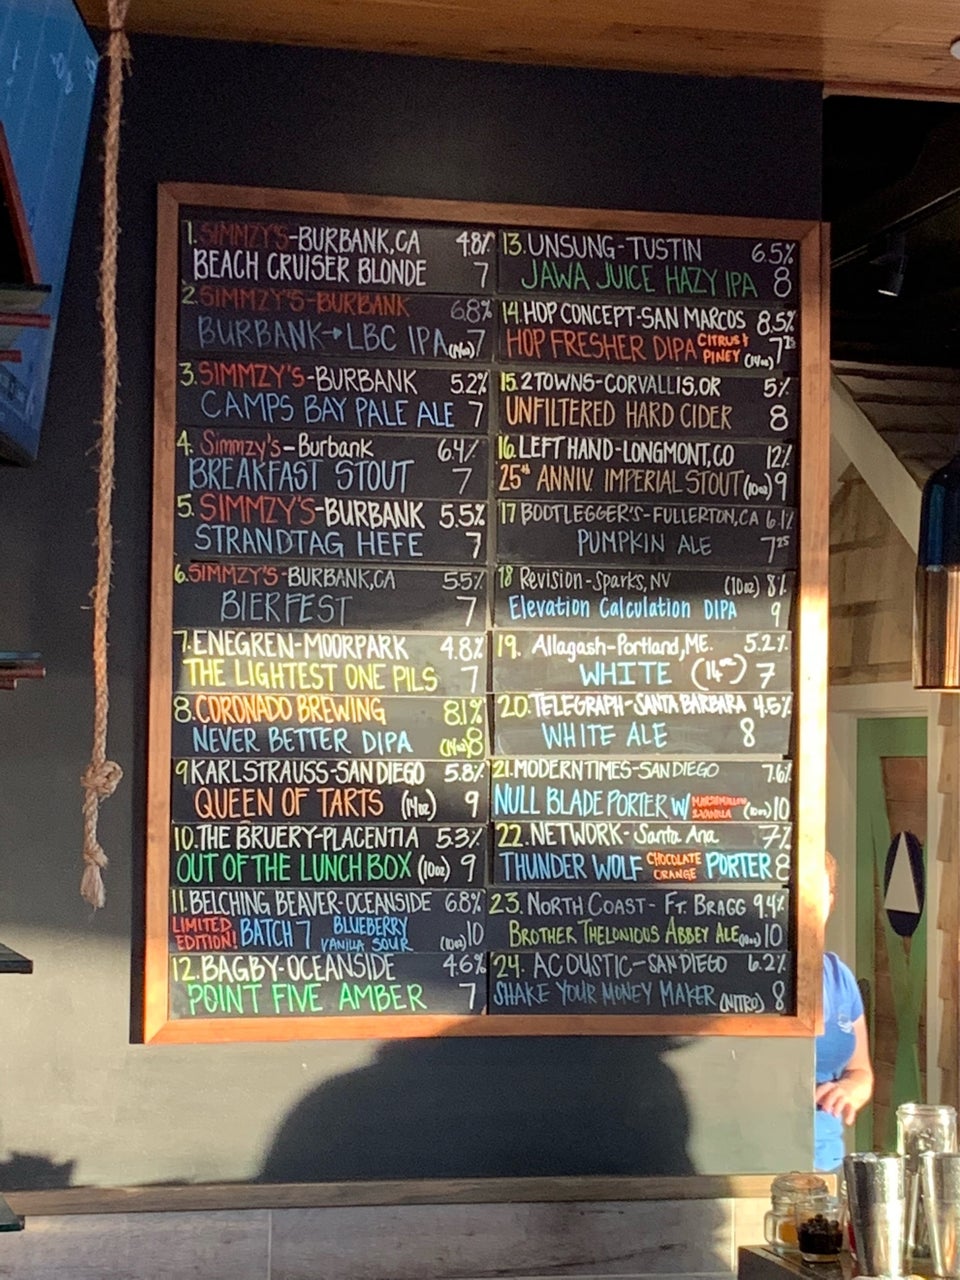 1. SIMMZY'S-BURBANK, CA 4.8%
BEACH CRUISER BLONDE 7
2. SIMMZY'S-BURBANK 6.8%
BURBANK→LBC IPA (14oz) 7
3. SIMMZY'S-BURBANK 5.2%
CAMPS BAY PALE ALE 7
4. Simmzy's-Burbank 6.4%
BREAKFAST STOUT 7
5. SIMMZY'S-BURBANK 5.5%
STRANDTAG HEFE 7
6. SIMMZY'S-BURBANK, CA 5.5%
BIERFEST 7
7. ENEGREN-MOORPARK 4.8%
THE LIGHTEST ONE PILS 7
8. CORONADO BREWING 8.1%
NEVER BETTER DIPA (14oz) 8
9 KARL STRAUSS-SAN DIEGO 5.8%
QUEEN OF TARTS (14oz) 9
10. THE BRUERY-PLACENTIA 5.3%
OUT OF THE LUNCHBOX (10oz) 9
11. BELCHING BEAVER-OCEANSIDE 6.8%
LIMITED EDITION! BATCH 7 BLUEBERRY VANILLA SOUR (10oz) 10
12. BAGBY-OCEANSIDE 4.6%
POINT FIVE AMBER 7
13. UNSUNG-TUSTIN 6.5%
JAWA JUICE HAZY IPA 8
14. HOP CONCEPT-SAN MARCOS 8.5%
HOP FRESHER DIPA CITRUS & PINEY (14oz) 7 25
15. 2 TOWNS-CORVALLIS, OR 5%
UNFILTERED HARD CIDER 8
16. LEFT HAND-LONGMONT, CO 12%
25th ANNIV. IMPERIAL STOUT (10oz) 9
17 BOOTLEGGER'S-FULLERTON, CA 6.1%
PUMPKIN ALE 7 25
18 Revision-Sparks, NV (10oz) 8%
Elevation Calculation DIPA 9
19. Allagash-Portland, ME. 5.2%
WHITE (14oz) 7
20. TELEGRAPH-SANTA BARBARA 4.5%
WHITE ALE 8
21. MODERN TIMES-SAN DIEGO 7.6%
NULL BLADE PORTER W/ MARSHMALLOW & VANILLA (10oz) 10
22. NETWORK-Santa Ana 7%
THUNDER WOLF CHOCOLATE ORANGE PORTER 8
23. NORTH COAST-FT. BRAGG 9.4%
BROTHER THELONIOUS ABBEY ALE (10oz) 10
24. ACOUSTIC-SAN DIEGO 6.2%
SHAKE YOUR MONEY MAKER (NITRO) 8